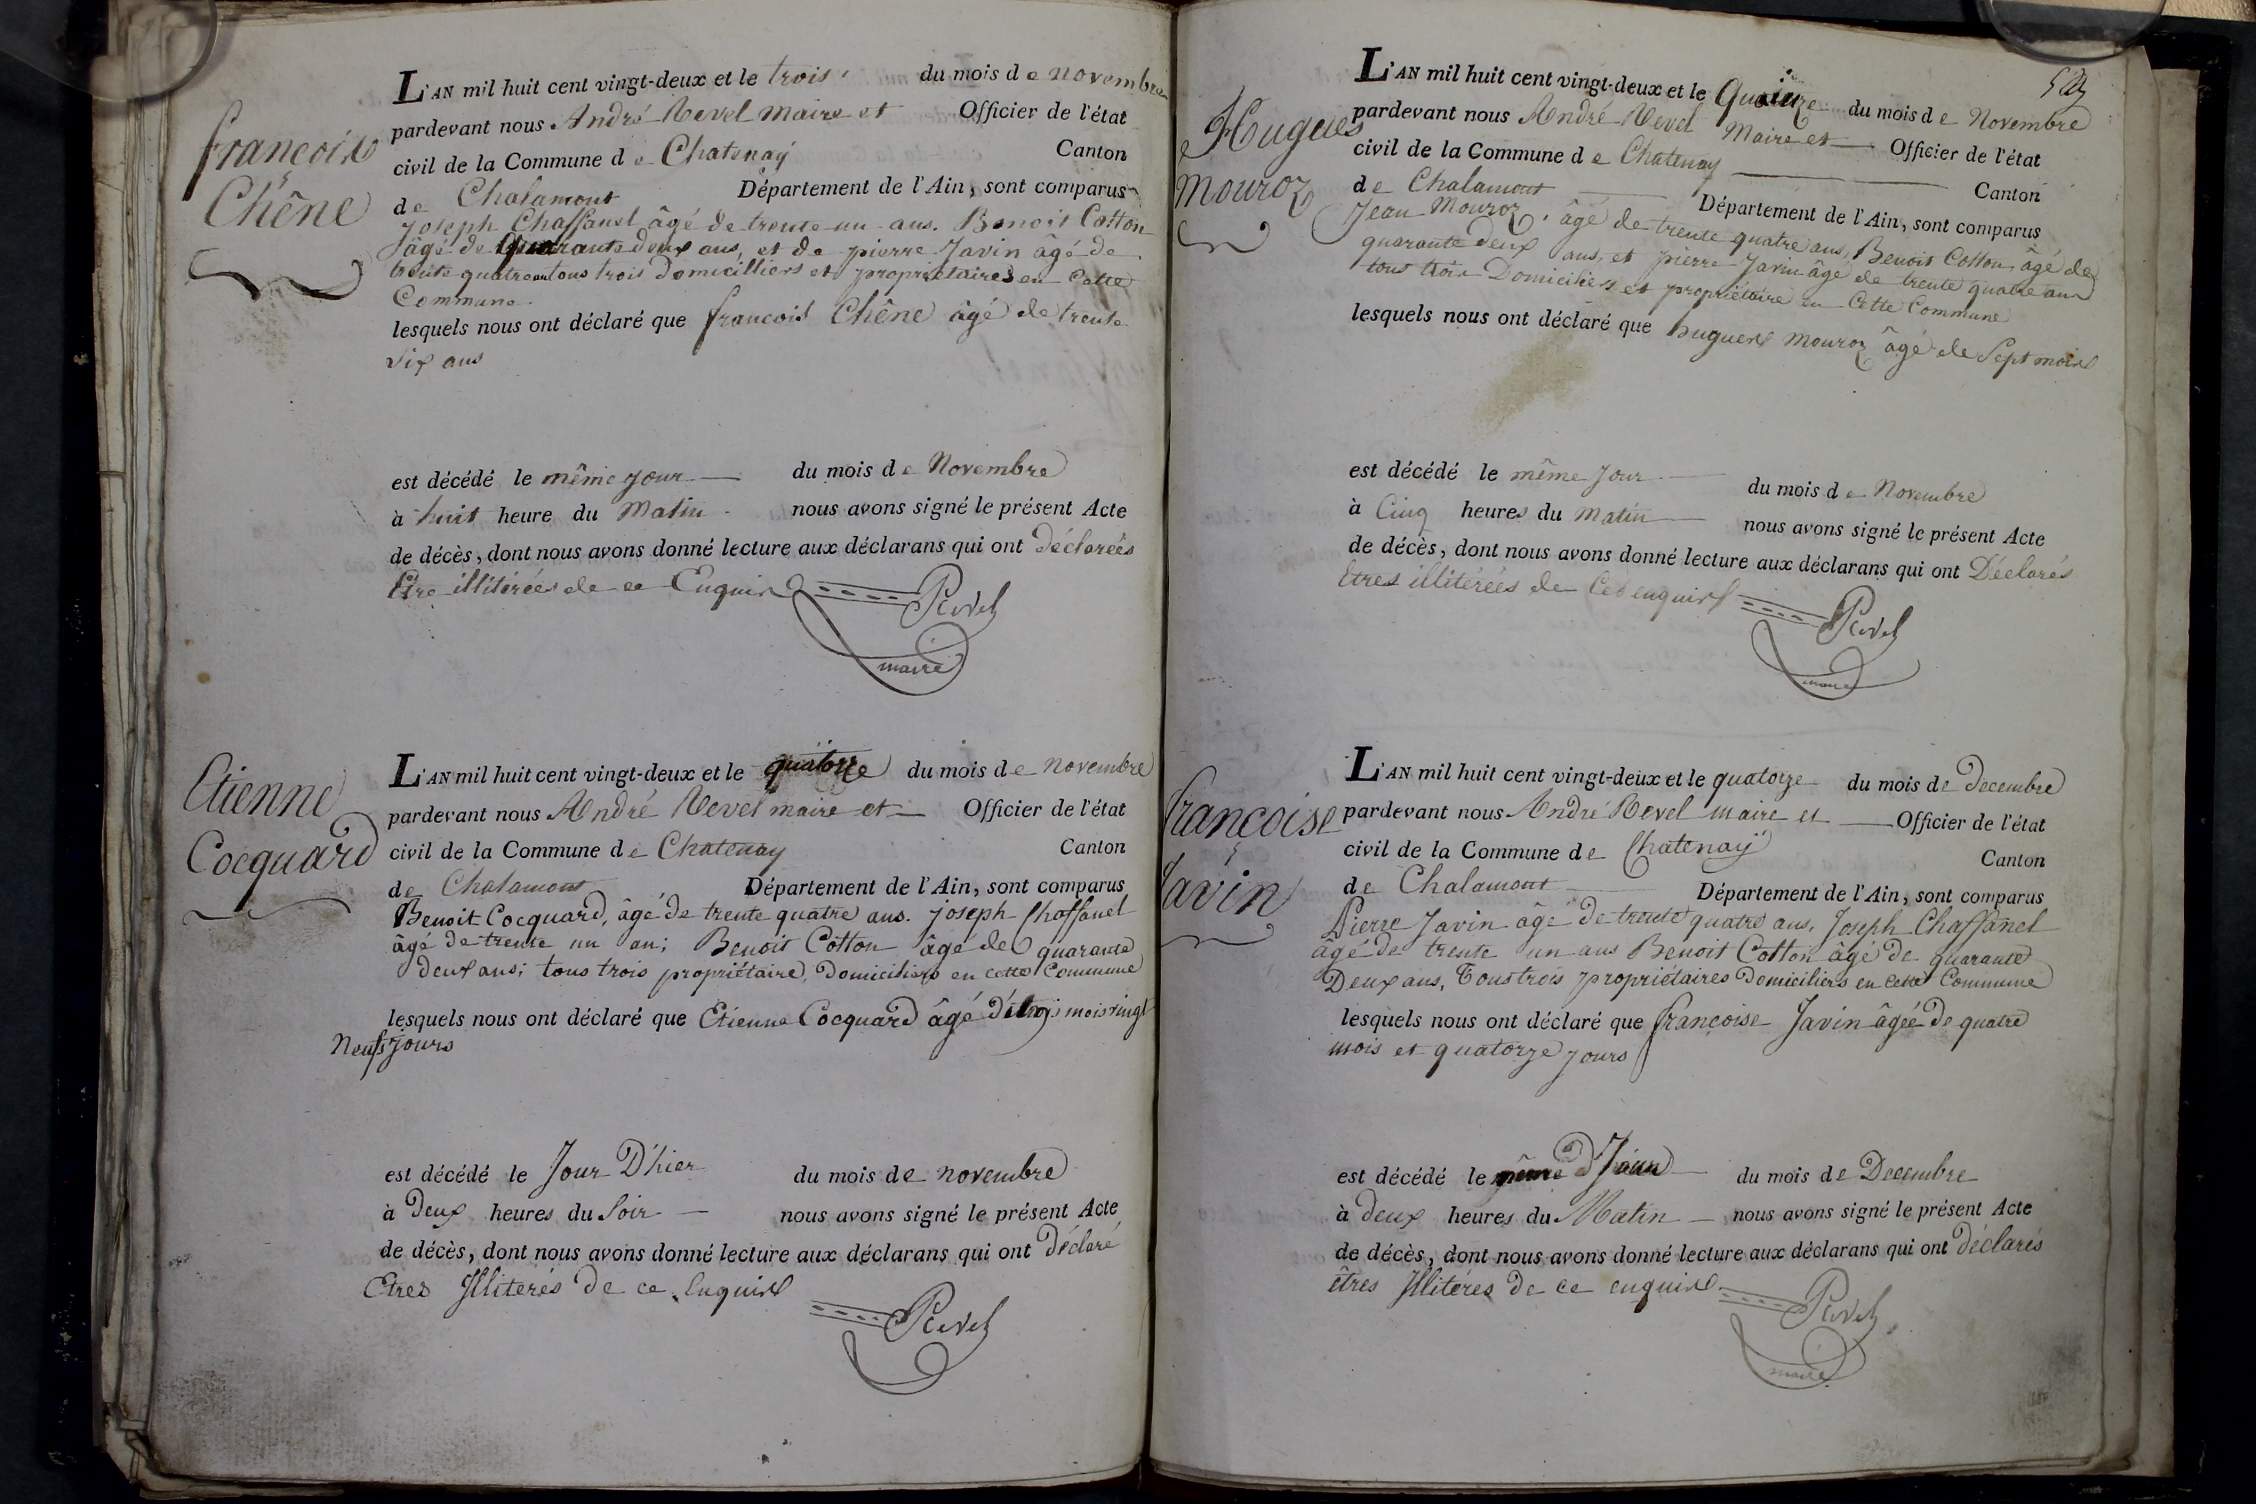 François
Chêne
L'AN mil huit cent vingt-deux et le trois du mois de novembre
pardevant nous André Revel maire et Officier de l'état
civil de la Commune de Chatenaÿ Canton
de Chalamont Département de l'Ain, sont comparus
Joseph Chaffanel âgé de trente un ans. Benoit Cotton
âgé de quarante deux ans, et de pierre Javin âgé de
trente quatre ans tous trois Domicilliers et propriétaires en Cette
Commune.
lesquels nous ont déclaré que francois Chêne âgé de trente
Six ans
est décédé le même jour du mois de Novembre
à huit heure du Matin nous avons signé le présent Acte
de décès, dont nous avons donné lecture aux déclarans qui ont Déclareés
Etre illitéreés de ce Enquis
Revel
maire
Etienne
Cocquard
L'AN mil huit cent vingt-deux et le quatorze du mois de novembre
pardevant nous André Revel maire et Officier de l'état
civil de la Commune de Chatenay Canton
de Chalamont Département de l'Ain, sont comparus
Benoit Cocquard, âgé de trente quatre ans. joseph Chaffanel
âgé de trente un an; Benoit Cotton âgé de quarante
deux ans; tous trois propriétaire, Domiciliers en cette Commune
lesquels nous ont déclaré que Etienne Cocquard âgé de trois mois vingt
Neufs jours
est décédé le Jour D'hier du mois de novembre
à Deux heures du Soir nous avons signé le présent Acte
de décès, dont nous avons donné lecture aux déclarans qui ont Déclaré
Etres Illiterés de ce Enquis
Revel
Hugues
Mouroz
L'AN mil huit cent vingt-deux et le du mois de Novembre
pardevant nous André Revel Maire et Officier de l'état
civil de la Commune de Chatenay Canton
de Chalamont Département de l'Ain, sont comparus
Jean Mouroz, âgé de trente quatre ans, Benoit Cotton, âgé de
quarante deux ans, et pierre Javin âgé de trente quatre ans
tous trois Domiciliers et propriétaire en Cette Commune
lesquels nous ont déclaré que hugues Mouroz âgé de Sept mois
est décédé le même Jour du mois de Novembre
à Cinq heures du Matin nous avons signé le présent Acte
de décès, dont nous avons donné lecture aux déclarans qui ont Déclarés
Etres illitéreés de Ce enquis
Revel
maire
françoise
Javin
L'AN mil huit cent vingt-deux et le quatorze du mois de Decembre
pardevant nous André Revel maire et Officier de l'état
civil de la Commune de Chatenaÿ Canton
de Chalamont Département de l'Ain, sont comparus
Pierre Javin âgé De trente quatre ans, Joseph Chaffanel
âgé de trente un ans Benoit Cotton âgé De quarante
Deux ans, Tous trois propriétaires Domiciliers en Cette Commune
lesquels nous ont déclaré que françoise Javin âgée De quatre
mois et quatorze jours
est décédé le même Jour du mois de Decembre
à deux heures du Matin nous avons signé le présent Acte
de décès, dont nous avons donné lecture aux déclarans qui ont Déclarés
êtres Illitéres De ce enquis
Revel
maire